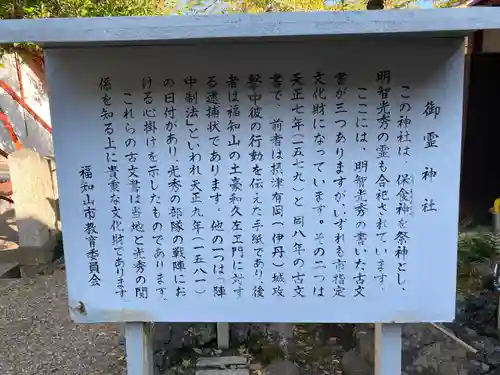 御霊神社
この神社は、保食神を祭神とし、
明智光秀の霊も合祀されています。
ここには、明智光秀の書いた古文
書が三つありますが、いずれも市指定
文化財になっています。その二つは
天正七年(一五七九)と同八年の古文
書で、前者は摂津有岡(伊丹)城攻
撃中彼の行動を伝えた手紙であり、後
者は福知山の土豪和久左エ門に対す
る逮捕状であります。他の一つは「陣
中制法」といわれ天正九年(一五八一)
の日付があり、光秀の部隊の戦陣にお
ける心掛けを示したものであります。
これらの古文書は当地と光秀の関
係を知る上に貴重な文化財であります。
福知山市教育委員会